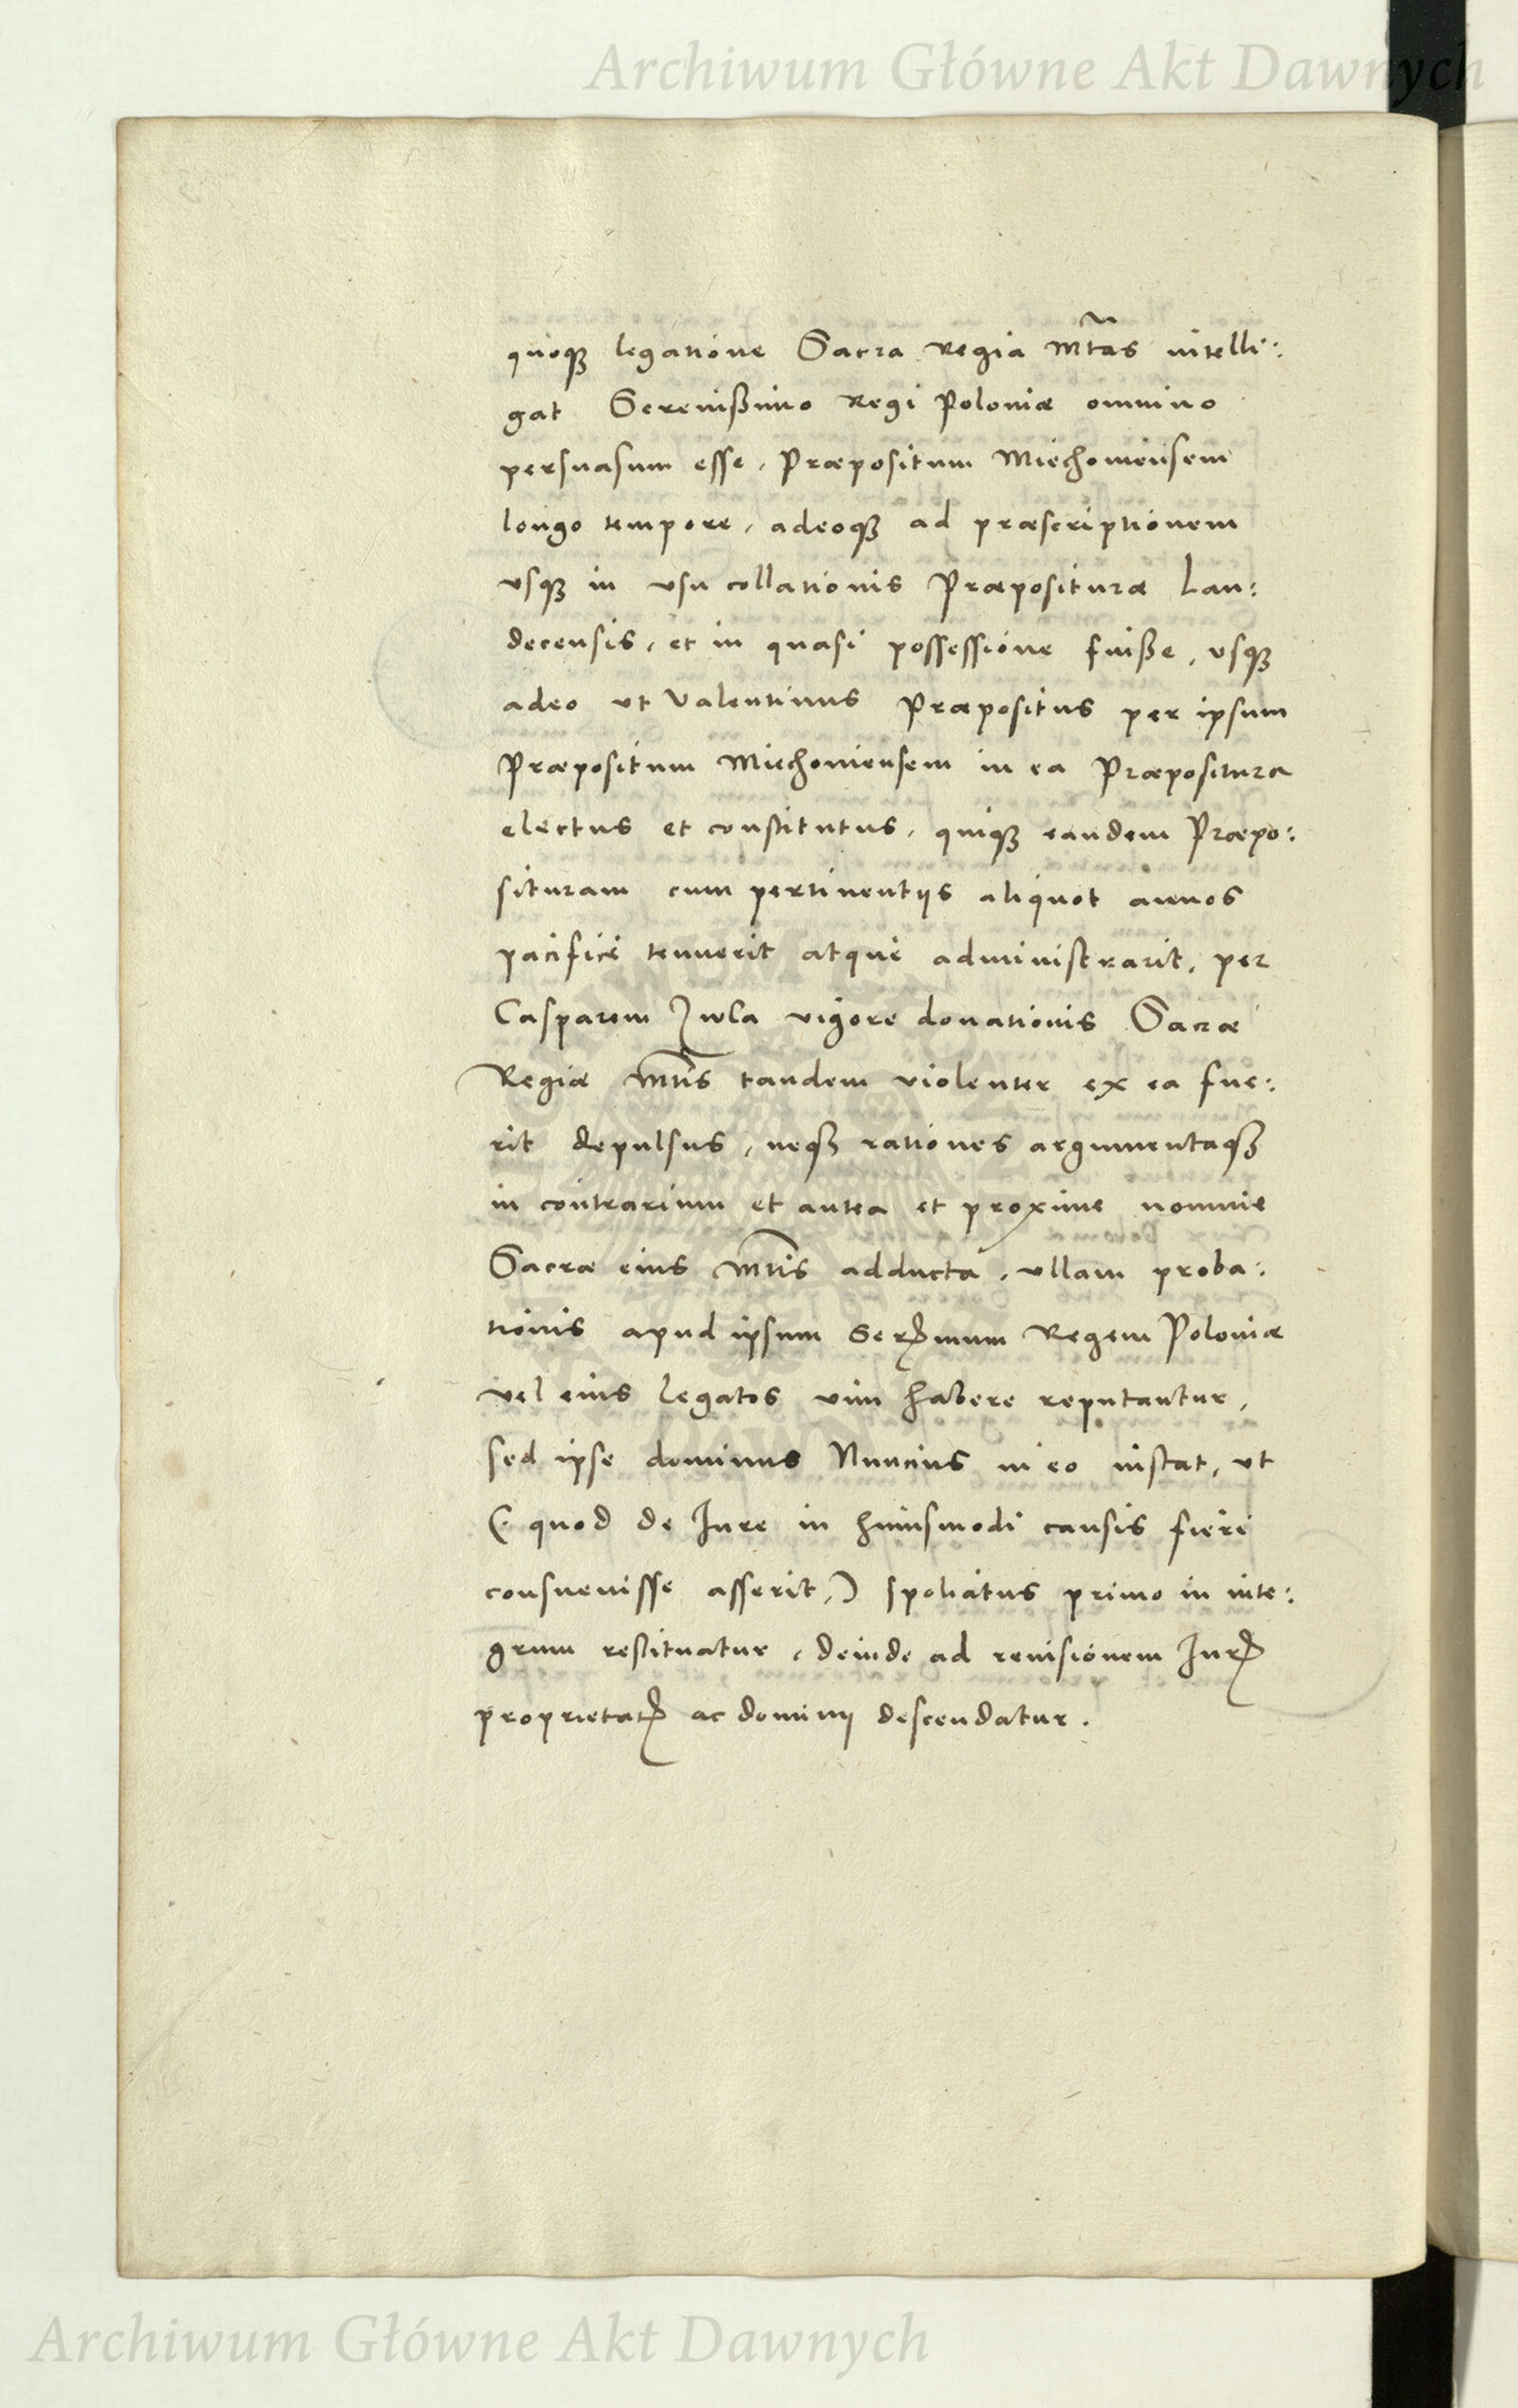 Archiwum Główne Akt Dawnych
quoqꝫ legatione Sacra Regia Mtas intelli:
gat Serenißimo Regi Poloniæ omnino
persuasum esse, Præpositum Miechouiensem
longo tempore, adeoqꝫ ad præscriptionem
vsqꝫ in vsu collationis Præposituræ Lan:
decensis, et in quasi possessione fuiße, vsqꝫ
adeo vt Valentinus Præpositus per ipsum
Præpositum Miechouiensem in ea Præpositura
electus et constitutus, quiqꝫ eandem Præpo:
situram cum pertinentijs aliquot annos
pacifice tenuerit atque administrarit, per
Casparem Jula vigore donationis Sacræ
Regiæ Mtis tandem violenter ex ea fue:
rit depulsus, neqꝫ rationes argumentaqꝫ
in contrarium et antea et proxime nomine
Sacræ eius Mtis adducta, vllam proba:
tionis apud ipsum Serꝭmum Regem Poloniæ
vel eius legatos vim habere reputantur,
sed ipse dominus Nuncius in eo instat, vt
(: quod de Jure in huiusmodi causis fieri
consueuisse asserit,) spoliatus primo in inte:
grum restituatur, deinde ad reuisionem Jurꝭ
proprietatꝭ ac dominij descendatur.
Archiwum Główne Akt Dawnych